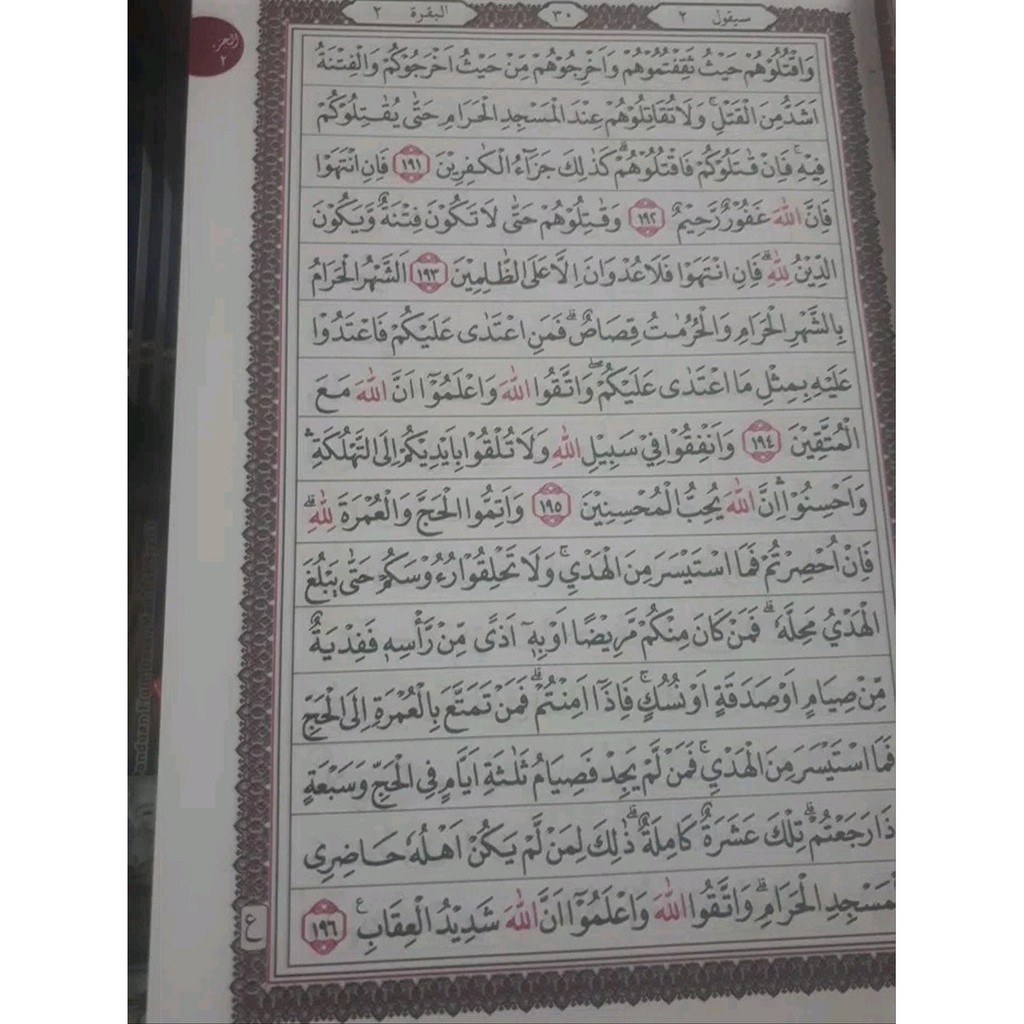 سيقول ٢
٣٠
البقرة ٢
الجزء ٢
وَاقْتُلُوْهُمْ حَيْثُ ثَقِفْتُمُوْهُمْ وَاَخْرِجُوْهُمْ مِّنْ حَيْثُ اَخْرَجُوْكُمْ وَالْفِتْنَةُ
اَشَدُّ مِنَ الْقَتْلِۚ وَلَا تُقَاتِلُوْهُمْ عِنْدَ الْمَسْجِدِ الْحَرَامِ حَتّٰى يُقٰتِلُوْكُمْ
فِيْهِۚ فَاِنْ قٰتَلُوْكُمْ فَاقْتُلُوْهُمْۗ كَذٰلِكَ جَزَاۤءُ الْكٰفِرِيْنَ ١٩١ فَاِنِ انْتَهَوْا
فَاِنَّ اللّٰهَ غَفُوْرٌ رَّحِيْمٌ ١٩٢ وَقٰتِلُوْهُمْ حَتّٰى لَا تَكُوْنَ فِتْنَةٌ وَّيَكُوْنَ
الدِّيْنُ لِلّٰهِۗ فَاِنِ انْتَهَوْا فَلَا عُدْوَانَ اِلَّا عَلَى الظّٰلِمِيْنَ ١٩٣ اَلشَّهْرُ الْحَرَامُ
بِالشَّهْرِ الْحَرَامِ وَالْحُرُمٰتُ قِصَاصٌۗ فَمَنِ اعْتَدٰى عَلَيْكُمْ فَاعْتَدُوْا
عَلَيْهِ بِمِثْلِ مَا اعْتَدٰى عَلَيْكُمْۖ وَاتَّقُوا اللّٰهَ وَاعْلَمُوْٓا اَنَّ اللّٰهَ مَعَ
الْمُتَّقِيْنَ ١٩٤ وَاَنْفِقُوْا فِيْ سَبِيْلِ اللّٰهِ وَلَا تُلْقُوْا بِاَيْدِيْكُمْ اِلَى التَّهْلُكَةِۛ
وَاَحْسِنُوْاۛ اِنَّ اللّٰهَ يُحِبُّ الْمُحْسِنِيْنَ ١٩٥ وَاَتِمُّوا الْحَجَّ وَالْعُمْرَةَ لِلّٰهِۗ
فَاِنْ اُحْصِرْتُمْ فَمَا اسْتَيْسَرَ مِنَ الْهَدْيِۚ وَلَا تَحْلِقُوْا رُءُوْسَكُمْ حَتّٰى يَبْلُغَ
الْهَدْيُ مَحِلَّهٗۗ فَمَنْ كَانَ مِنْكُمْ مَّرِيْضًا اَوْ بِهٖٓ اَذًى مِّنْ رَّأْسِهٖ فَفِدْيَةٌ
مِّنْ صِيَامٍ اَوْ صَدَقَةٍ اَوْ نُسُكٍۚ فَاِذَآ اَمِنْتُمْۗ فَمَنْ تَمَتَّعَ بِالْعُمْرَةِ اِلَى الْحَجِّ
فَمَا اسْتَيْسَرَ مِنَ الْهَدْيِۚ فَمَنْ لَّمْ يَجِدْ فَصِيَامُ ثَلٰثَةِ اَيَّامٍ فِى الْحَجِّ وَسَبْعَةٍ
ذَا رَجَعْتُمْۗ تِلْكَ عَشَرَةٌ كَامِلَةٌۗ ذٰلِكَ لِمَنْ لَّمْ يَكُنْ اَهْلُهٗ حَاضِرِى
لْمَسْجِدِ الْحَرَامِۗ وَاتَّقُوا اللّٰهَ وَاعْلَمُوْٓا اَنَّ اللّٰهَ شَدِيْدُ الْعِقَابِ ࣖ ١٩٦
ع